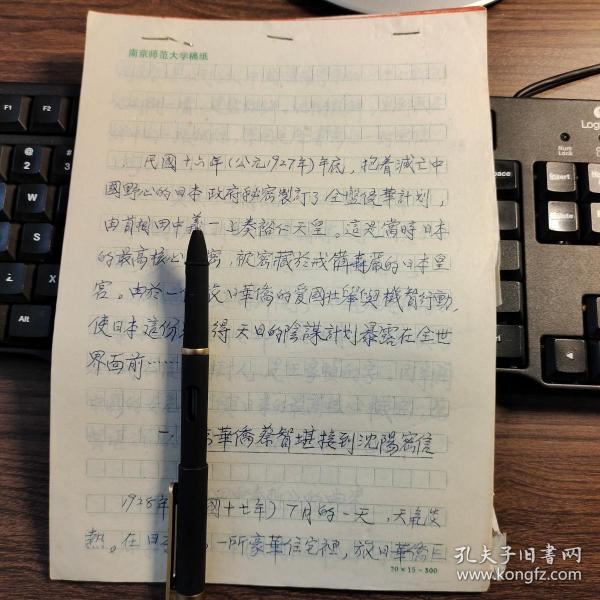 南京师范大学稿纸
民國十六年(公元1927年)年底,抱着滅亡中
國野心的日本政府秘密製訂了全盤侵華計划,
由首相田中義一上奏裕仁天皇。這是當時日本
的最高核心密,被密藏於戒備森嚴的日本皇
宮。由於一日華僑的爱國壯舉與機智行動,
使日本這份得天日的陰謀計划暴露在全世
界面前……
一、華僑蔡智堪接到沈陽密信
1928年國十七年)7月的一天,天氣炎
熱。在日一所豪華住宅裡,旅日華僑巨
20×15=300
孔夫子旧书网
www.kongfz.com
F1
F2
Num Lock
Insert
Delete
End